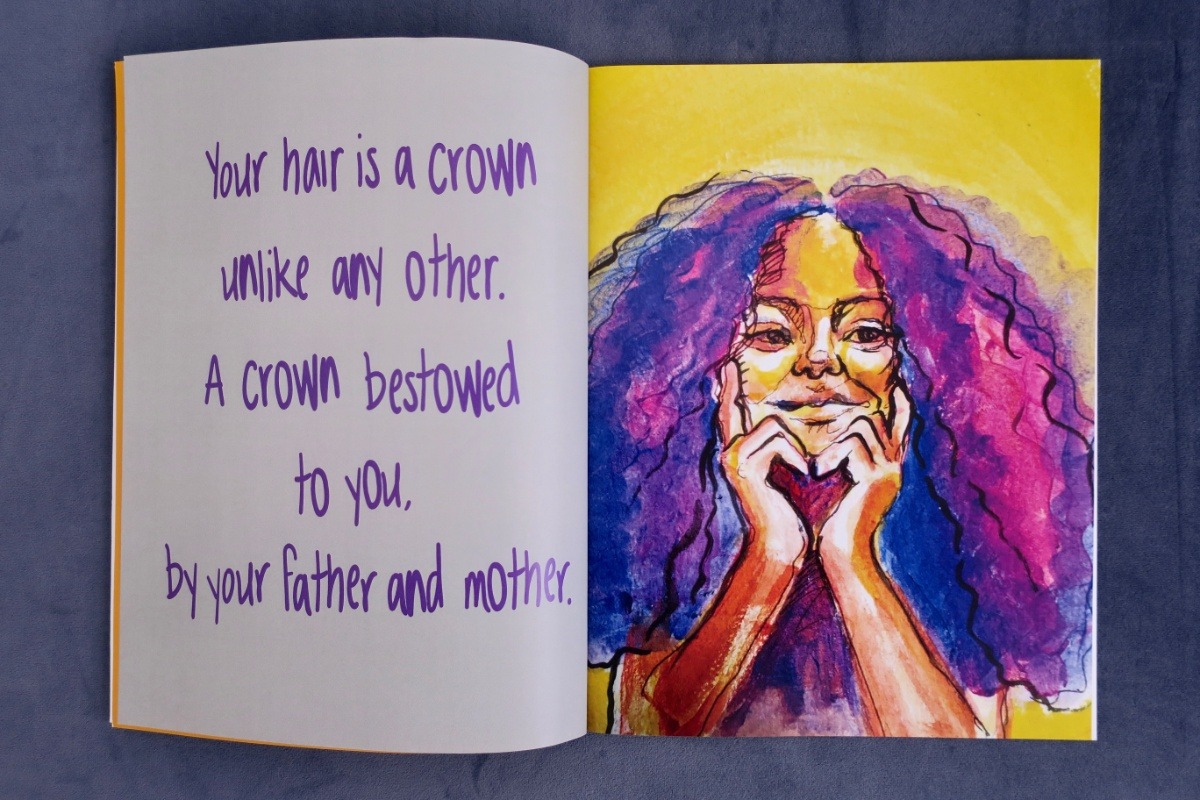 Your hair is a crown
unlike any other.
A crown bestowed
to you,
by your father and mother.